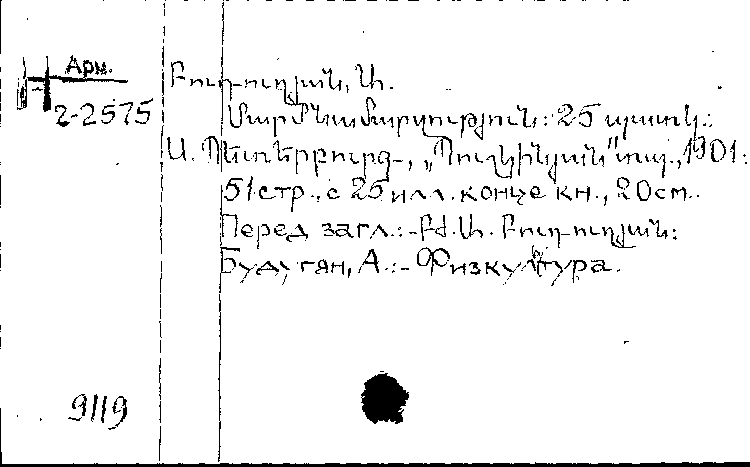 Арм.
2-2575
Բուդուղյան, Ա.
Մարմնամարզություն: 25 պատկ.:
Ս. Պետերբուրգ, „Պուշկինյան" տպ., 1901:
51 стр., с 25 илл. конце кн., 20 см.
Перед загл.: - Բժ. Ա. Բուդուղյան:
Будугян, А.: - Физкултура.
9119